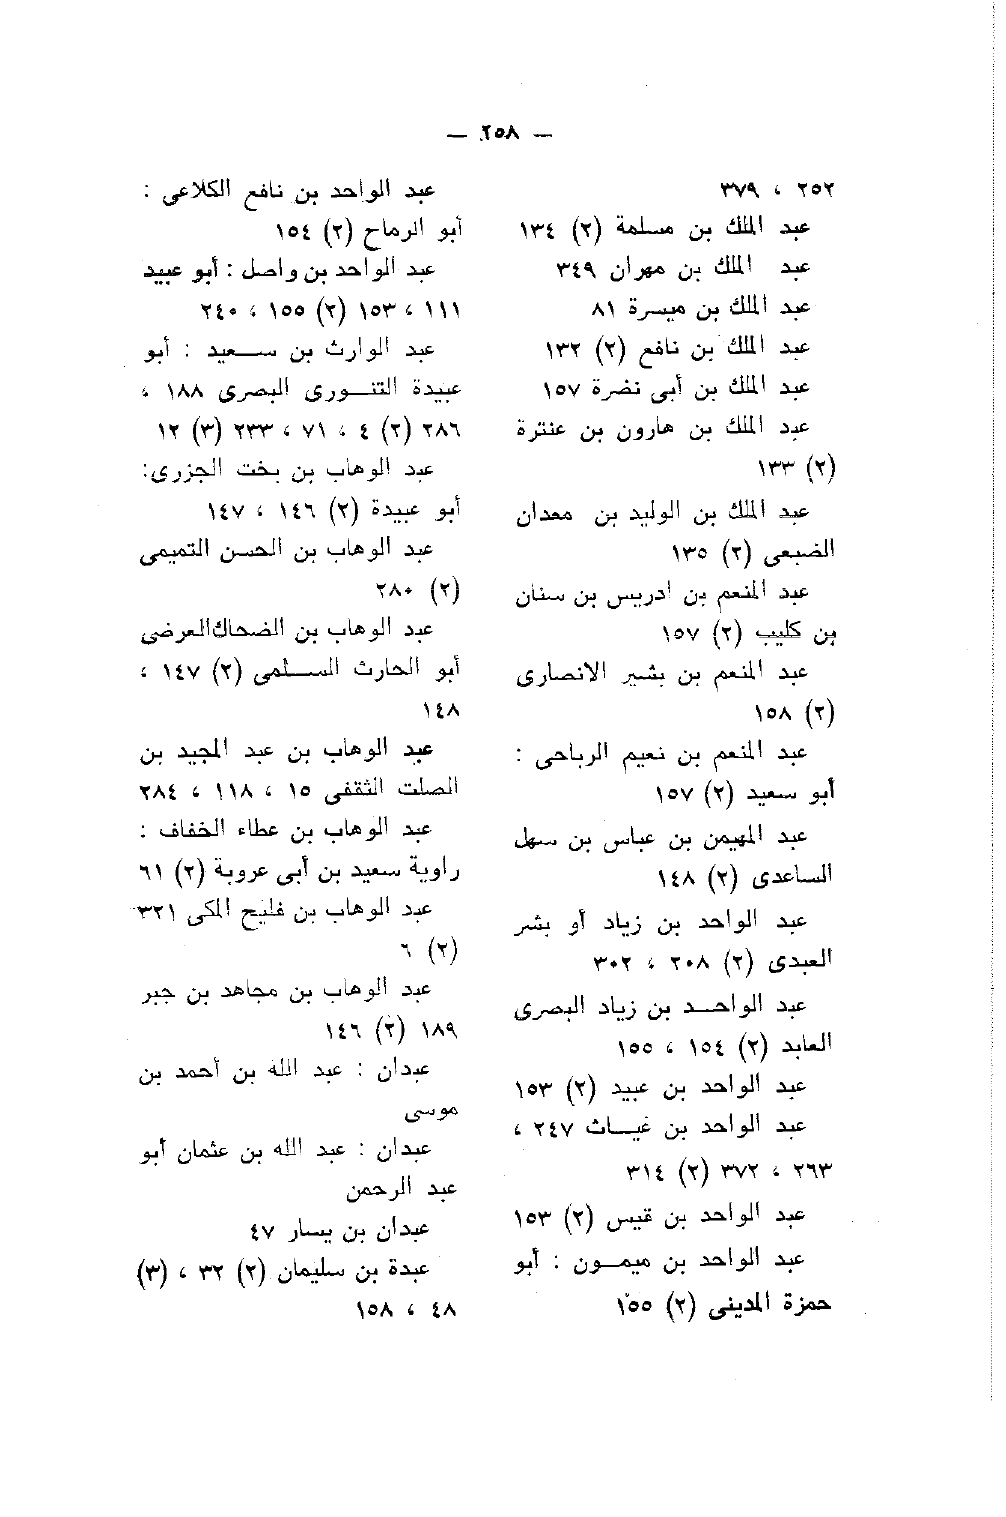 — ٢٥٨ —
٢٥٢ ، ٣٧٩
عبد الملك بن مسلمة (٢) ١٣٤
عبد الملك بن مهران ٣٤٩
عبد الملك بن ميسرة ٨١
عبد الملك بن نافع (٢) ١٣٢
عبد الملك بن أبى نضرة ١٥٧
عبد الملك بن هارون بن عنترة
(٢) ١٣٣
عبد الملك بن الوليد بن معدان
الضبعى (٢) ١٣٥
عبد المنعم بن ادريس بن سنان
بن كليب (٢) ١٥٧
عبد المنعم بن بشير الانصارى
(٢) ١٥٨
عبد المنعم بن نعيم الرباحى :
أبو سعيد (٢) ١٥٧
عبد المهيمن بن عباس بن سهل
الساعدى (٢) ١٤٨
عبد الواحد بن زياد أو بشر
العبدى (٢) ٢٠٨ ، ٣٠٢
عبد الواحد بن زياد البصرى
العابد (٢) ١٥٤ ، ١٥٥
عبد الواحد بن عبيد (٢) ١٥٣
عبد الواحد بن غياث ٢٤٧ ،
٢٦٣ ، ٣٧٢ (٢) ٣١٤
عبد الواحد بن قيس (٢) ١٥٣
عبد الواحد بن ميمون : أبو
حمزة المدينى (٢) ١٥٥
عبد الواحد بن نافع الكلاعى :
أبو الرماح (٢) ١٥٤
عبد الواحد بن واصل : أبو عبيد
١١١ ، ١٥٣ (٢) ١٥٥ ، ٢٤٠
عبد الوارث بن سعيد : أبو
عبيدة التنورى البصرى ١٨٨ ،
٢٨٦ (٢) ٤ ، ٧١ ، ٢٣٣ (٣) ١٢
عبد الوهاب بن بخت الجزرى:
أبو عبيدة (٢) ١٤٦ ، ١٤٧
عبد الوهاب بن الحسن التميمى
(٢) ٢٨٠
عبد الوهاب بن الضحاك العرضى
أبو الحارث السلمى (٢) ١٤٧ ،
١٤٨
عبد الوهاب بن عبد المجيد بن
الصلت الثقفى ١٥ ، ١١٨ ، ٢٨٤
عبد الوهاب بن عطاء الخفاف :
راوية سعيد بن أبى عروبة (٢) ٦١
عبد الوهاب بن فليح المكى ٣٢١
(٢) ٦
عبد الوهاب بن مجاهد بن جبر
١٨٩ (٢) ١٤٦
عبدان : عبد الله بن أحمد بن
موسى
عبدان : عبد الله بن عثمان أبو
عبد الرحمن
عبدان بن يسار ٤٧
عبدة بن سليمان (٢) ٣٢ ، (٣)
٤٨ ، ١٥٨